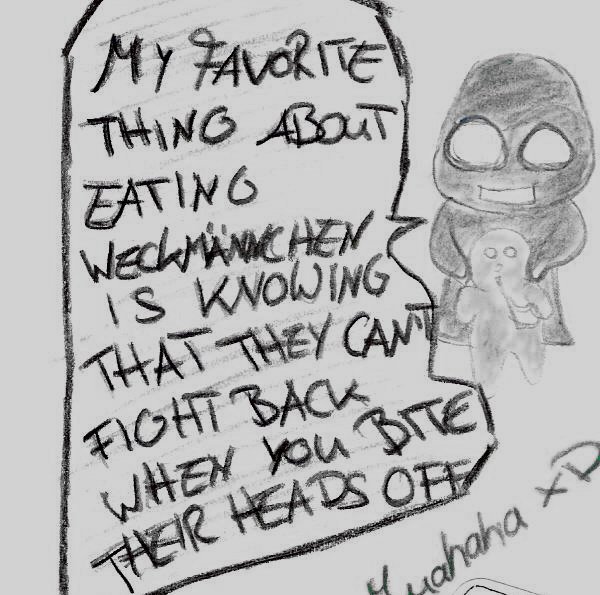 MY FAVORITE
THING ABOUT
EATING
WECKMÄNNCHEN
IS KNOWING
THAT THEY CAN'T
FIGHT BACK
WHEN YOU BITE
THEIR HEADS OFF
Muahaha xD